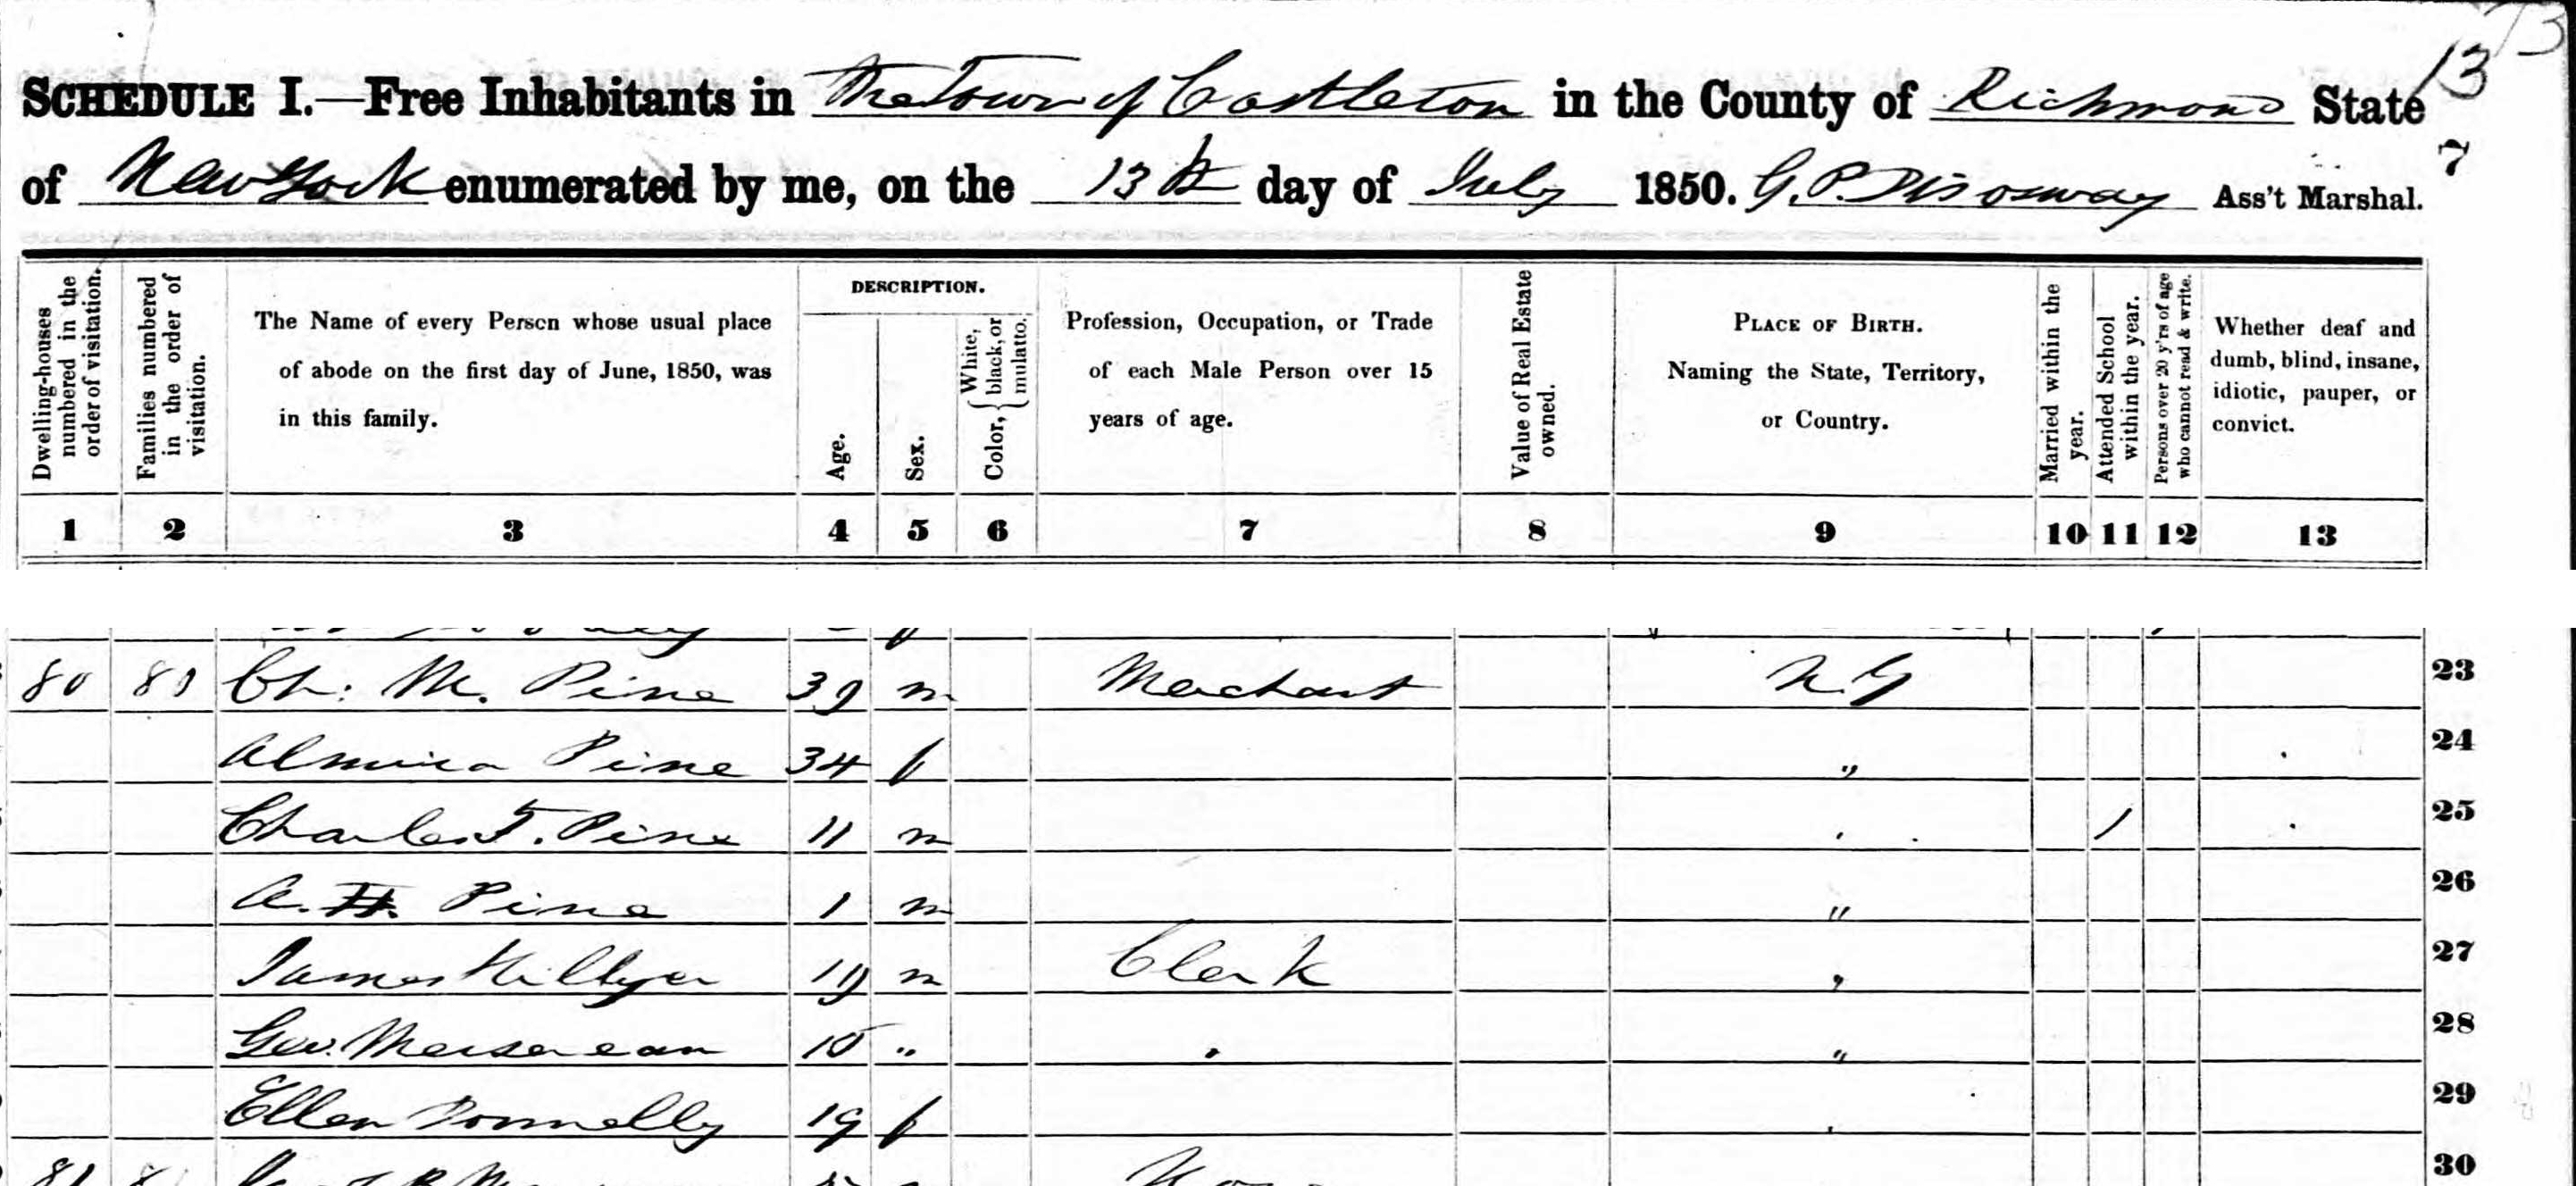 13
13
SCHEDULE I.—Free Inhabitants in The Town of Castleton in the County of Richmond State
of New York enumerated by me, on the 13th day of July 1850. G. P. Disosway Ass't Marshal.
7
Dwelling-houses numbered in the order of visitation.
Families numbered in the order of visitation.
The Name of every Person whose usual place
of abode on the first day of June, 1850, was
in this family.
DESCRIPTION.
Age.
Sex.
Color, { White, black, or mulatto.
Profession, Occupation, or Trade
of each Male Person over 15
years of age.
Value of Real Estate owned.
PLACE OF BIRTH.
Naming the State, Territory,
or Country.
Married within the year.
Attended School within the year.
Persons over 20 y'rs of age who cannot read & write.
Whether deaf and
dumb, blind, insane,
idiotic, pauper, or
convict.
1 2 3 4 5 6 7 8 9 10 11 12 13
80 80 Ch: M. Pine 39 m Merchant N.Y 23
Almira Pine 34 f " 24
Charles T. Pine 11 m " 1 25
A. H. Pine 1 m " 26
James Hillyer 19 m Clerk " 27
Geo. Mersereau 15 " " " 28
Ellen Donnelly 19 f " 29
81 30